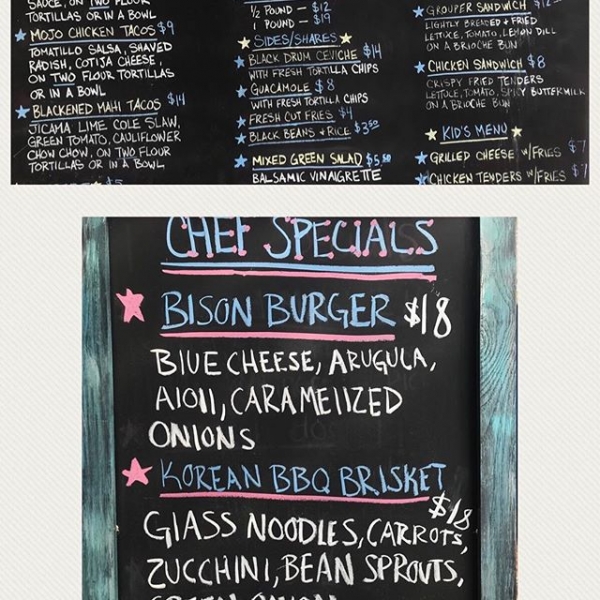 SAUCE, ON TWO FLOUR
TORTILLAS OR IN A BOWL
MOJO CHICKEN TACOS $9
TOMATILLO SALSA, SHAVED
RADISH, COTIJA CHEESE,
ON TWO FLOUR TORTILLAS
OR IN A BOWL
BLACKENED MAHI TACOS $14
JICAMA LIME COLE SLAW,
GREEN TOMATO, CAULIFLOWER
CHOW CHOW, ON TWO FLOUR
TORTILLAS OR IN A BOWL
$5
½ POUND - $12
1 POUND - $19
SIDES/SHARES
BLACK DRUM CEVICHE $14
WITH FRESH TORTILLA CHIPS
GUACAMOLE $8
WITH FRESH TORTILLA CHIPS
FRESH CUT FRIES $4
BLACK BEANS + RICE $3.50
MIXED GREEN SALAD $5.50
BALSAMIC VINAIGRETTE
GROUPER SANDWICH $12
LIGHTLY BREADED + FRIED
LETTUCE, TOMATO, LEMON DILL
ON A BRIOCHE BUN
CHICKEN SANDWICH $8
CRISPY FRIED TENDERS
LETTUCE, TOMATO, SPICY BUTTERMILK
ON A BRIOCHE BUN
KID'S MENU
GRILLED CHEESE W/FRIES $7
CHICKEN TENDERS W/FRIES $7
CHEF SPECIALS
BISON BURGER $18
BLUE CHEESE, ARUGULA,
AIOLI, CARAMELIZED
ONIONS
KOREAN BBQ BRISKET
$18
GLASS NOODLES, CARROTS,
ZUCCHINI, BEAN SPROUTS,
GREEN ONION